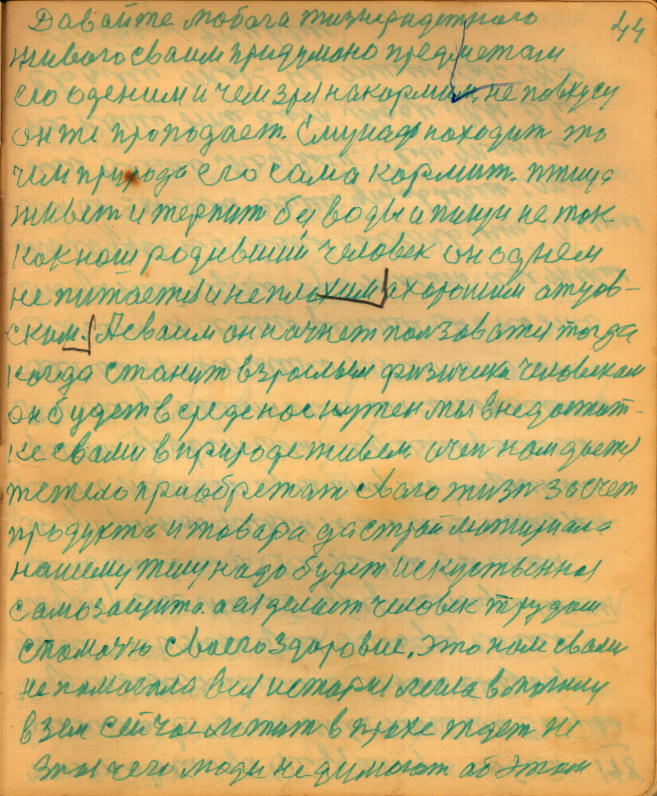 44
Давайте любога жизнерадстного
живого сваим придумоно предметам
его оденим и чем зря накормим, не повкусу
он же проподает. Ему надо находит то
чим природа его сама кормит. птица
живет и терпит без воды и пищи не так
как наш родивший человек он однем
не питается и не плохим а хорошим атцов-
ским. А сваим он начнет ползоватся тогда
когда станит взрослым физически человекам
он будет в среде нас нужен мы в недостат-
ке свами в природе живем. и чеп нам дается
тежело приобретат сваю жизн за счет
продукта и товара да строй материала
нашему телу надо будет искуственноя
самозащита. а ея делает человек трудом
спомочю сваего здоровие. Это нам свами
не помогала вся история легла в могилу
в зем сейчас лежит в прахе ждет не
зная чего люди не думают аб этом